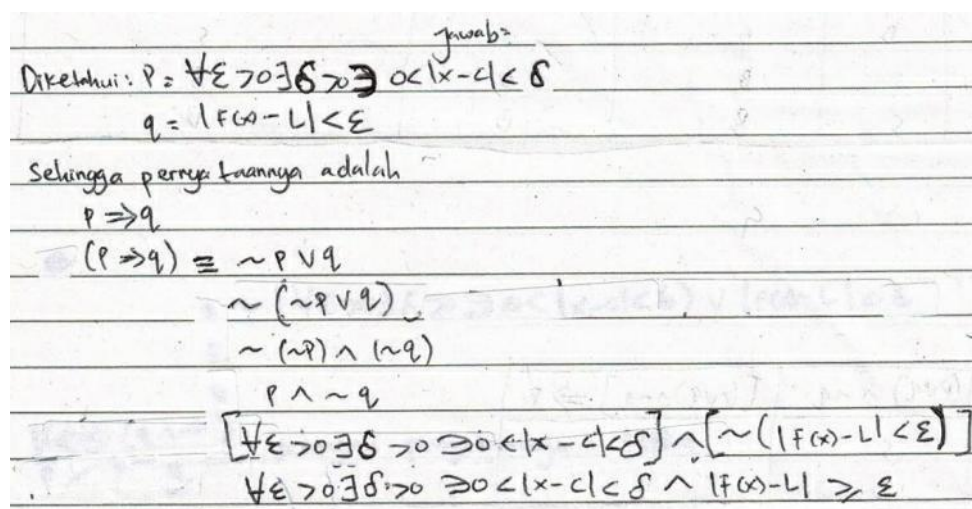 Jawab:
Diketahui: P = ∀ε >0 ∃δ >0 ∋ 0<|x-c|< δ
q = |F(x) - L| < ε
Sehingga pernyataannya adalah
P ⇒ q
(P ⇒ q) ≡ ~ P ∨ q
~ (~P ∨ q)
~ (~P) ∧ (~q)
P ∧ ~ q
[∀ε >0 ∃δ >0 ∋ 0 < |x - c| < δ] ∧ [~ (|F(x) - L| < ε)]
∀ε >0 ∃δ >0 ∋ 0 < |x - c| < δ ∧ |F(x) - L| ≥ ε